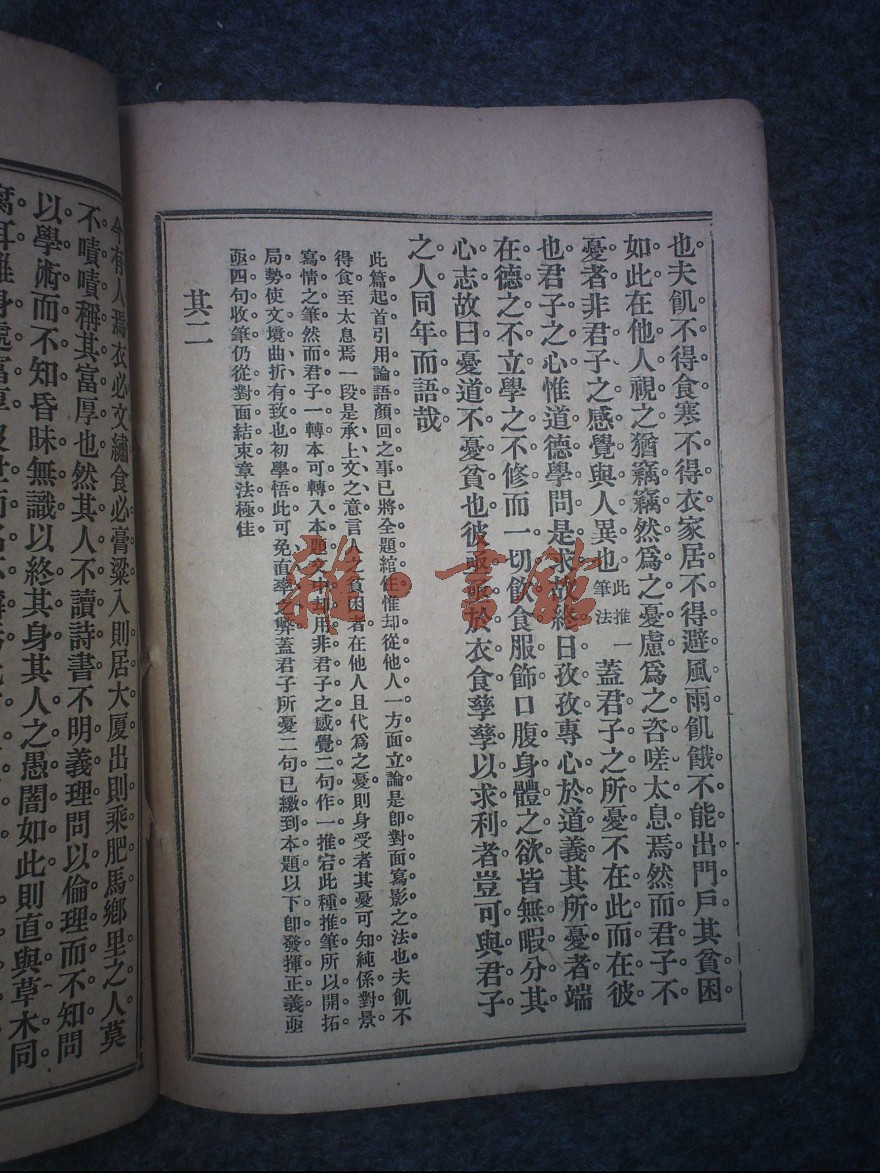 也夫飢。不得食。寒。不得衣。家居。不得避風雨。飢餓。不能出門戶。其貧困。
如此。在他人視之。猶竊竊然爲之憂慮。爲之咨嗟太息焉。然而君子不
憂者。非君子之感覺與人異也。此推一筆法蓋君子之所憂。不在此而在彼
也。君子之心。惟道德學問是求。故終日孜孜。專心於道義。其所憂者。端
在德之不立。學之不修。而一切飲食服飾。口腹身體之欲。皆無暇分其
心志。故曰憂道不憂貧也。彼亟亟於衣食。孳孳以求利者。豈可與君子
之人同年而語哉
此篇起首引用論語顏回之事。已將全題綰住。惟却從他人一方面立論。是卽對面寫影之法也。夫飢不
得食至太息焉一段。是承上文之意。言人之貧困者。在他人且代爲之憂。則身受者其憂可知。純係對景
寫情之筆。然而君子一轉。本可轉入本題。文中却用非君子之感覺二句作一推宕。此種推筆。所以開拓
局勢。使文境曲折有致也。初學悟此。可免直率之弊。蓋君子所憂二句。已繳到本題。以下卽發揮正義。亟
亟四句收筆。仍從對面結束。章法極佳
其二
今有人焉。衣必文繡。食必膏粱。入則居大厦。出則乘肥馬。鄉里之人。莫
不嘖嘖稱其富厚也。然其人不讀詩書。不明義理。問以倫理而不知。問
以學術而不知。昏昧無識。以終其身。其人之愚闇如此。則直與草木同
腐耳。雖身處富厚
雜·書館